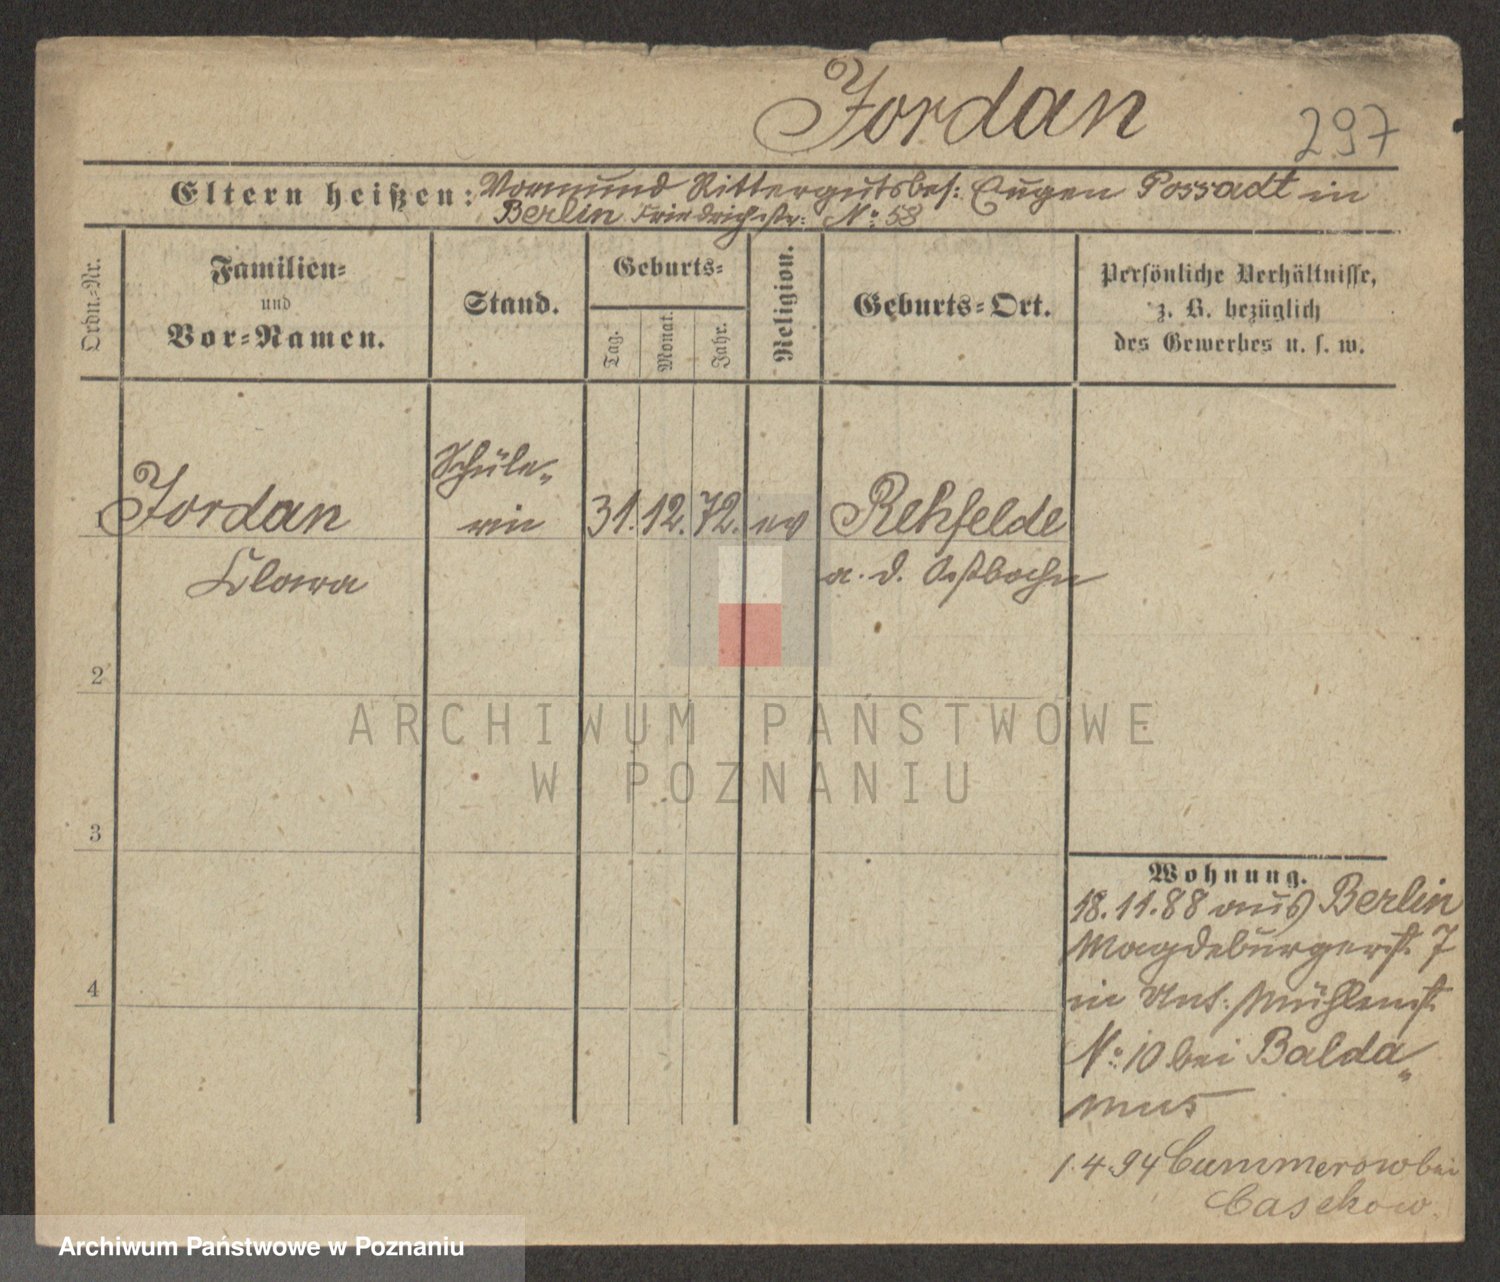 Jordan
297
Eltern heißen: Vormund Rittergutsbes: Eugen Possadt in
Berlin Friedrichstr: No: 58
Ordn.-Nr.
Familien-
und
Vor-Namen.
Stand.
Geburts-
Tag.
Monat.
Jahr.
Religion.
Geburts-Ort.
Persönliche Verhältnisse,
z. B. bezüglich
des Gewerbes u. s. w.
Schüle-
1 Jordan rin 31. 12. 72. ev Rehfelde
Clara a. d. Ostbahn
2
ARCHIWUM PAŃSTWOWE
W POZNANIU
3
Wohnung.
18.11.88 aus Berlin
Magdeburgerst. 7
4
in Unt: Mühlenst.
No: 10 bei Balda-
mus
1.4.94 Cummerow bei
Casekow.
Archiwum Państwowe w Poznaniu